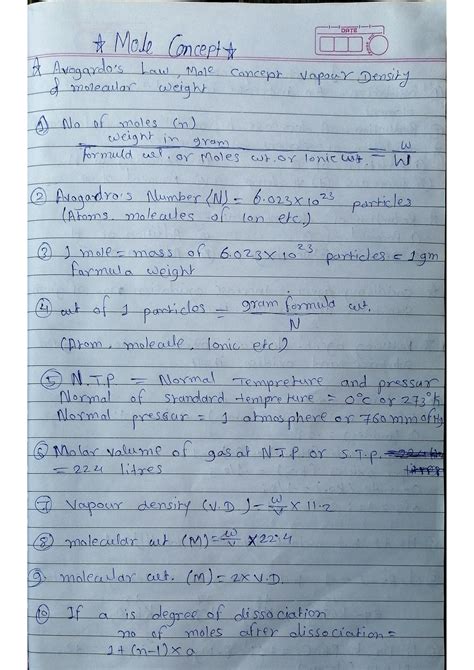 ☆ Mole Concept ☆
DATE
☆ Avogardo's Law, Mole Concept Vapour Density
& molecular weight
① No of moles (n)
weight in gram / formula wt. or Moles wt. or Ionic wt. = w/W
② Avogadro's Number (N) = 6.023 × 10²³ particles
(Atoms, molecules of Ion etc.)
③ 1 mole = mass of 6.023 × 10²³ particles = 1 gm
farmula weight
④ wt of 1 particles = gram formula wt. / N
(Atom, molecule, Ionic etc.)
⑤ N.T.P. = Normal Tempreture and pressur
Normal of standard tempreture = 0°c or 273°k
Normal pressur = 1 atmosphere or 760 mm of Hg
⑥ Molar volume of gas at NTP or S.T.P.
= 22.4 litres
⑦ Vapour density (V.D) = w/v × 11.2
⑧ molecular wt (M) = w/v × 22.4
⑨. molecular wt. (M) = 2 × V.D.
⑩ If a is degree of dissociation
no of moles after dissociation =
1 + (n-1) × a